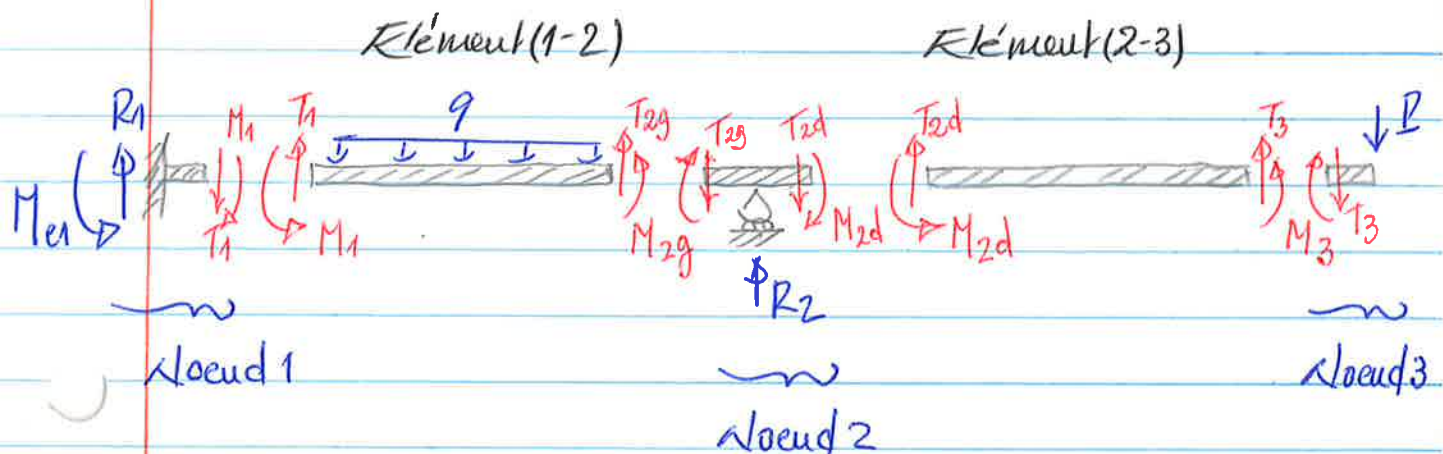 Elément(1-2) Elément(2-3)
R1 M1 T1 q T2g T2g T2d T2d T3 P
Me1 T1 M1 M2g M2d M2d M3 T3
R2
Noeud 1 Noeud 3
Noeud 2